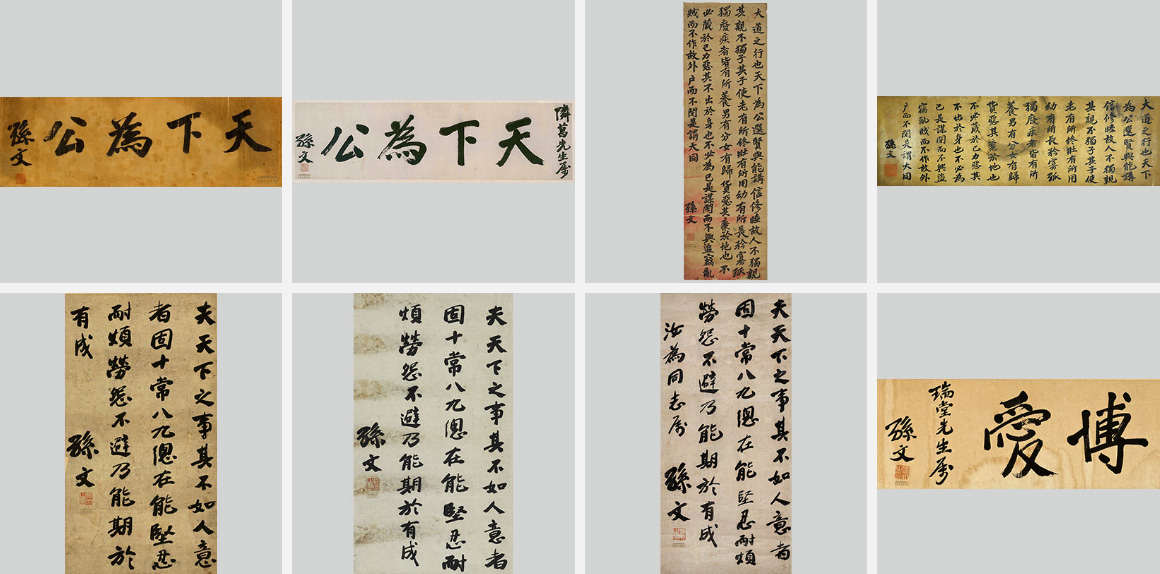 天下為公
孫文
隣葛先生属
天下為公
孫文
大道之行也天下為公選賢與能講信修睦故人不獨親
其親不獨子其子使老有所終壯有所用幼有所長矜寡孤
獨廢疾者皆有所養男有分女有歸貨惡其棄於地也不
必藏於己力惡其不出於身也不必為己是謀閉而不興盜竊亂
賊而不作故外戶而不閉是謂大同
孫文
大道之行也天下
為公選賢與能講
信修睦故人不獨親
其親不獨子其子使
老有所終壯有所用
幼有所長矜寡孤
獨廢疾者皆有所
養男有分女有歸
貨惡其棄於地也
不必藏於己力惡其
不出於身也不必為
己是謀閉而不興盜
竊亂賊而不作故外
戶而不閉是謂大同
孫文
夫天下之事其不如人意
者固十常八九總在能堅忍
耐煩勞怨不避乃能期於
有成
孫文
夫天下之事其不如人意者
固十常八九總在能堅忍耐
煩勞怨不避乃能期於有成
孫文
夫天下之事其不如人意者
固十常八九總在能堅忍耐煩
勞怨不避乃能期於有成
汝為同志属
孫文
博愛
瑞堂先生属
孫文